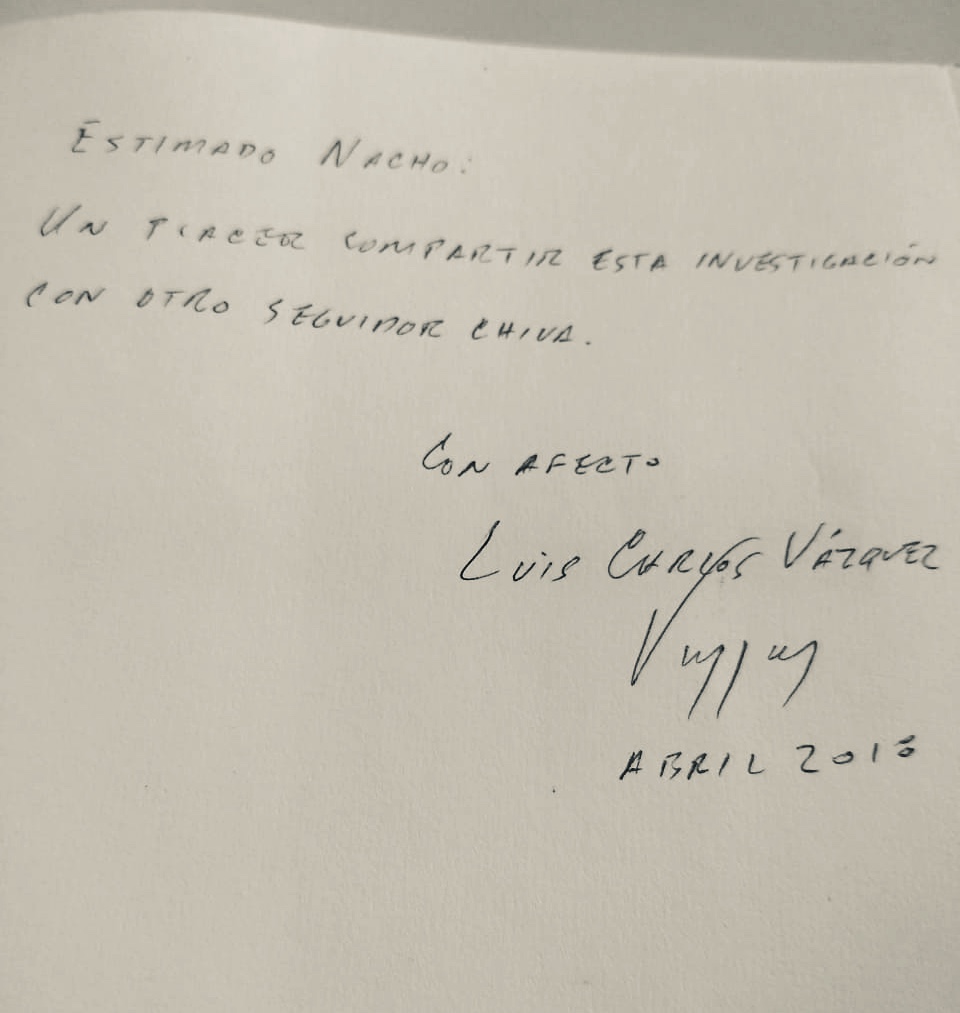 ESTIMADO NACHO:
UN PLACER COMPARTIR ESTA INVESTIGACIÓN
CON OTRO SEGUIDOR CHIVA.
CON AFECTO
LUIS CARLOS VÁZQUEZ
ABRIL